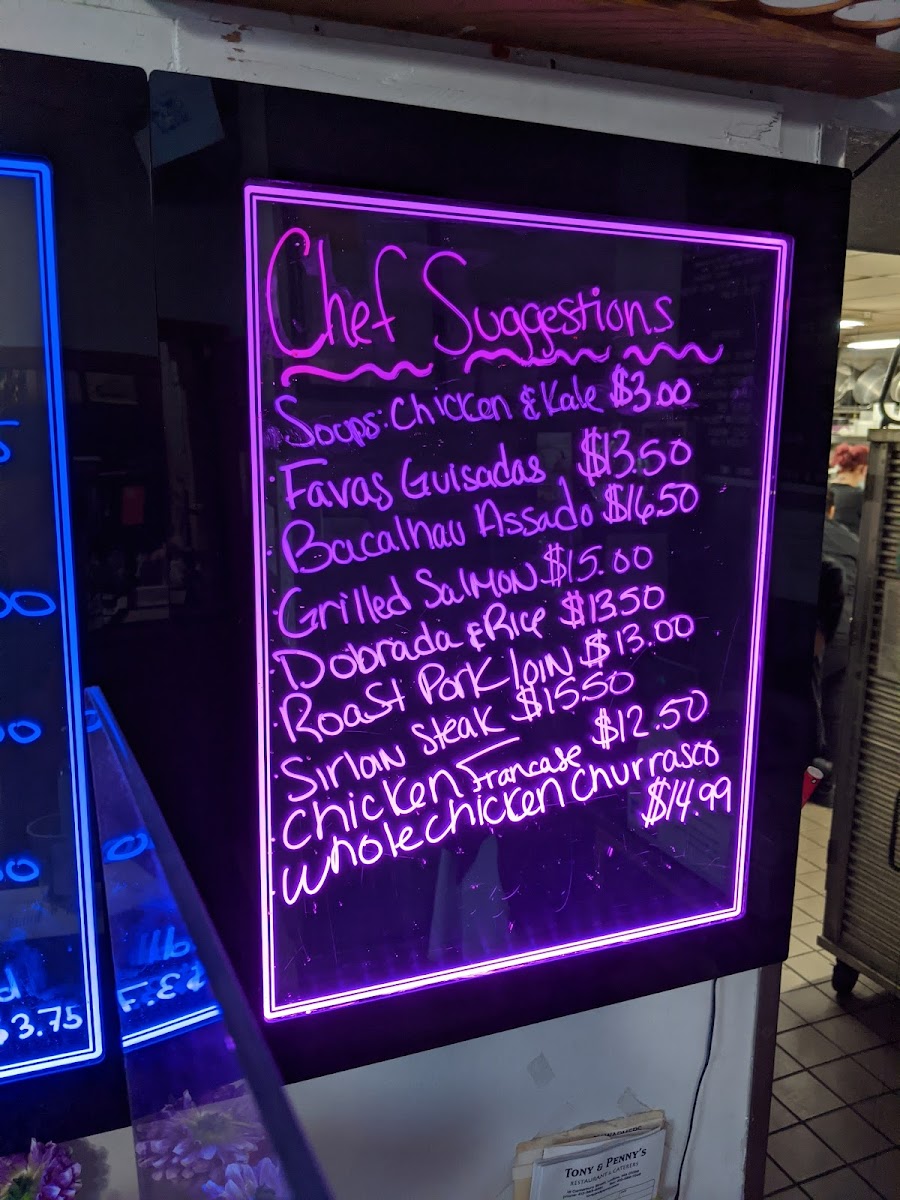 Chef Suggestions
Soups: Chicken & Kale $3.00
Favas Guisadas $13.50
Bacalhau Assado $16.50
Grilled Salmon $15.00
Dobrada & Rice $13.50
Roast Pork loin $13.00
Sirlan Steak $15.50
Chicken Francase $12.50
whole chicken churrasco
$14.99
$3.75
TONY & PENNY'S
RESTAURANT & CATERERS